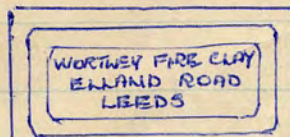 WORTLEY FIRE CLAY
ELLAND ROAD
LEEDS